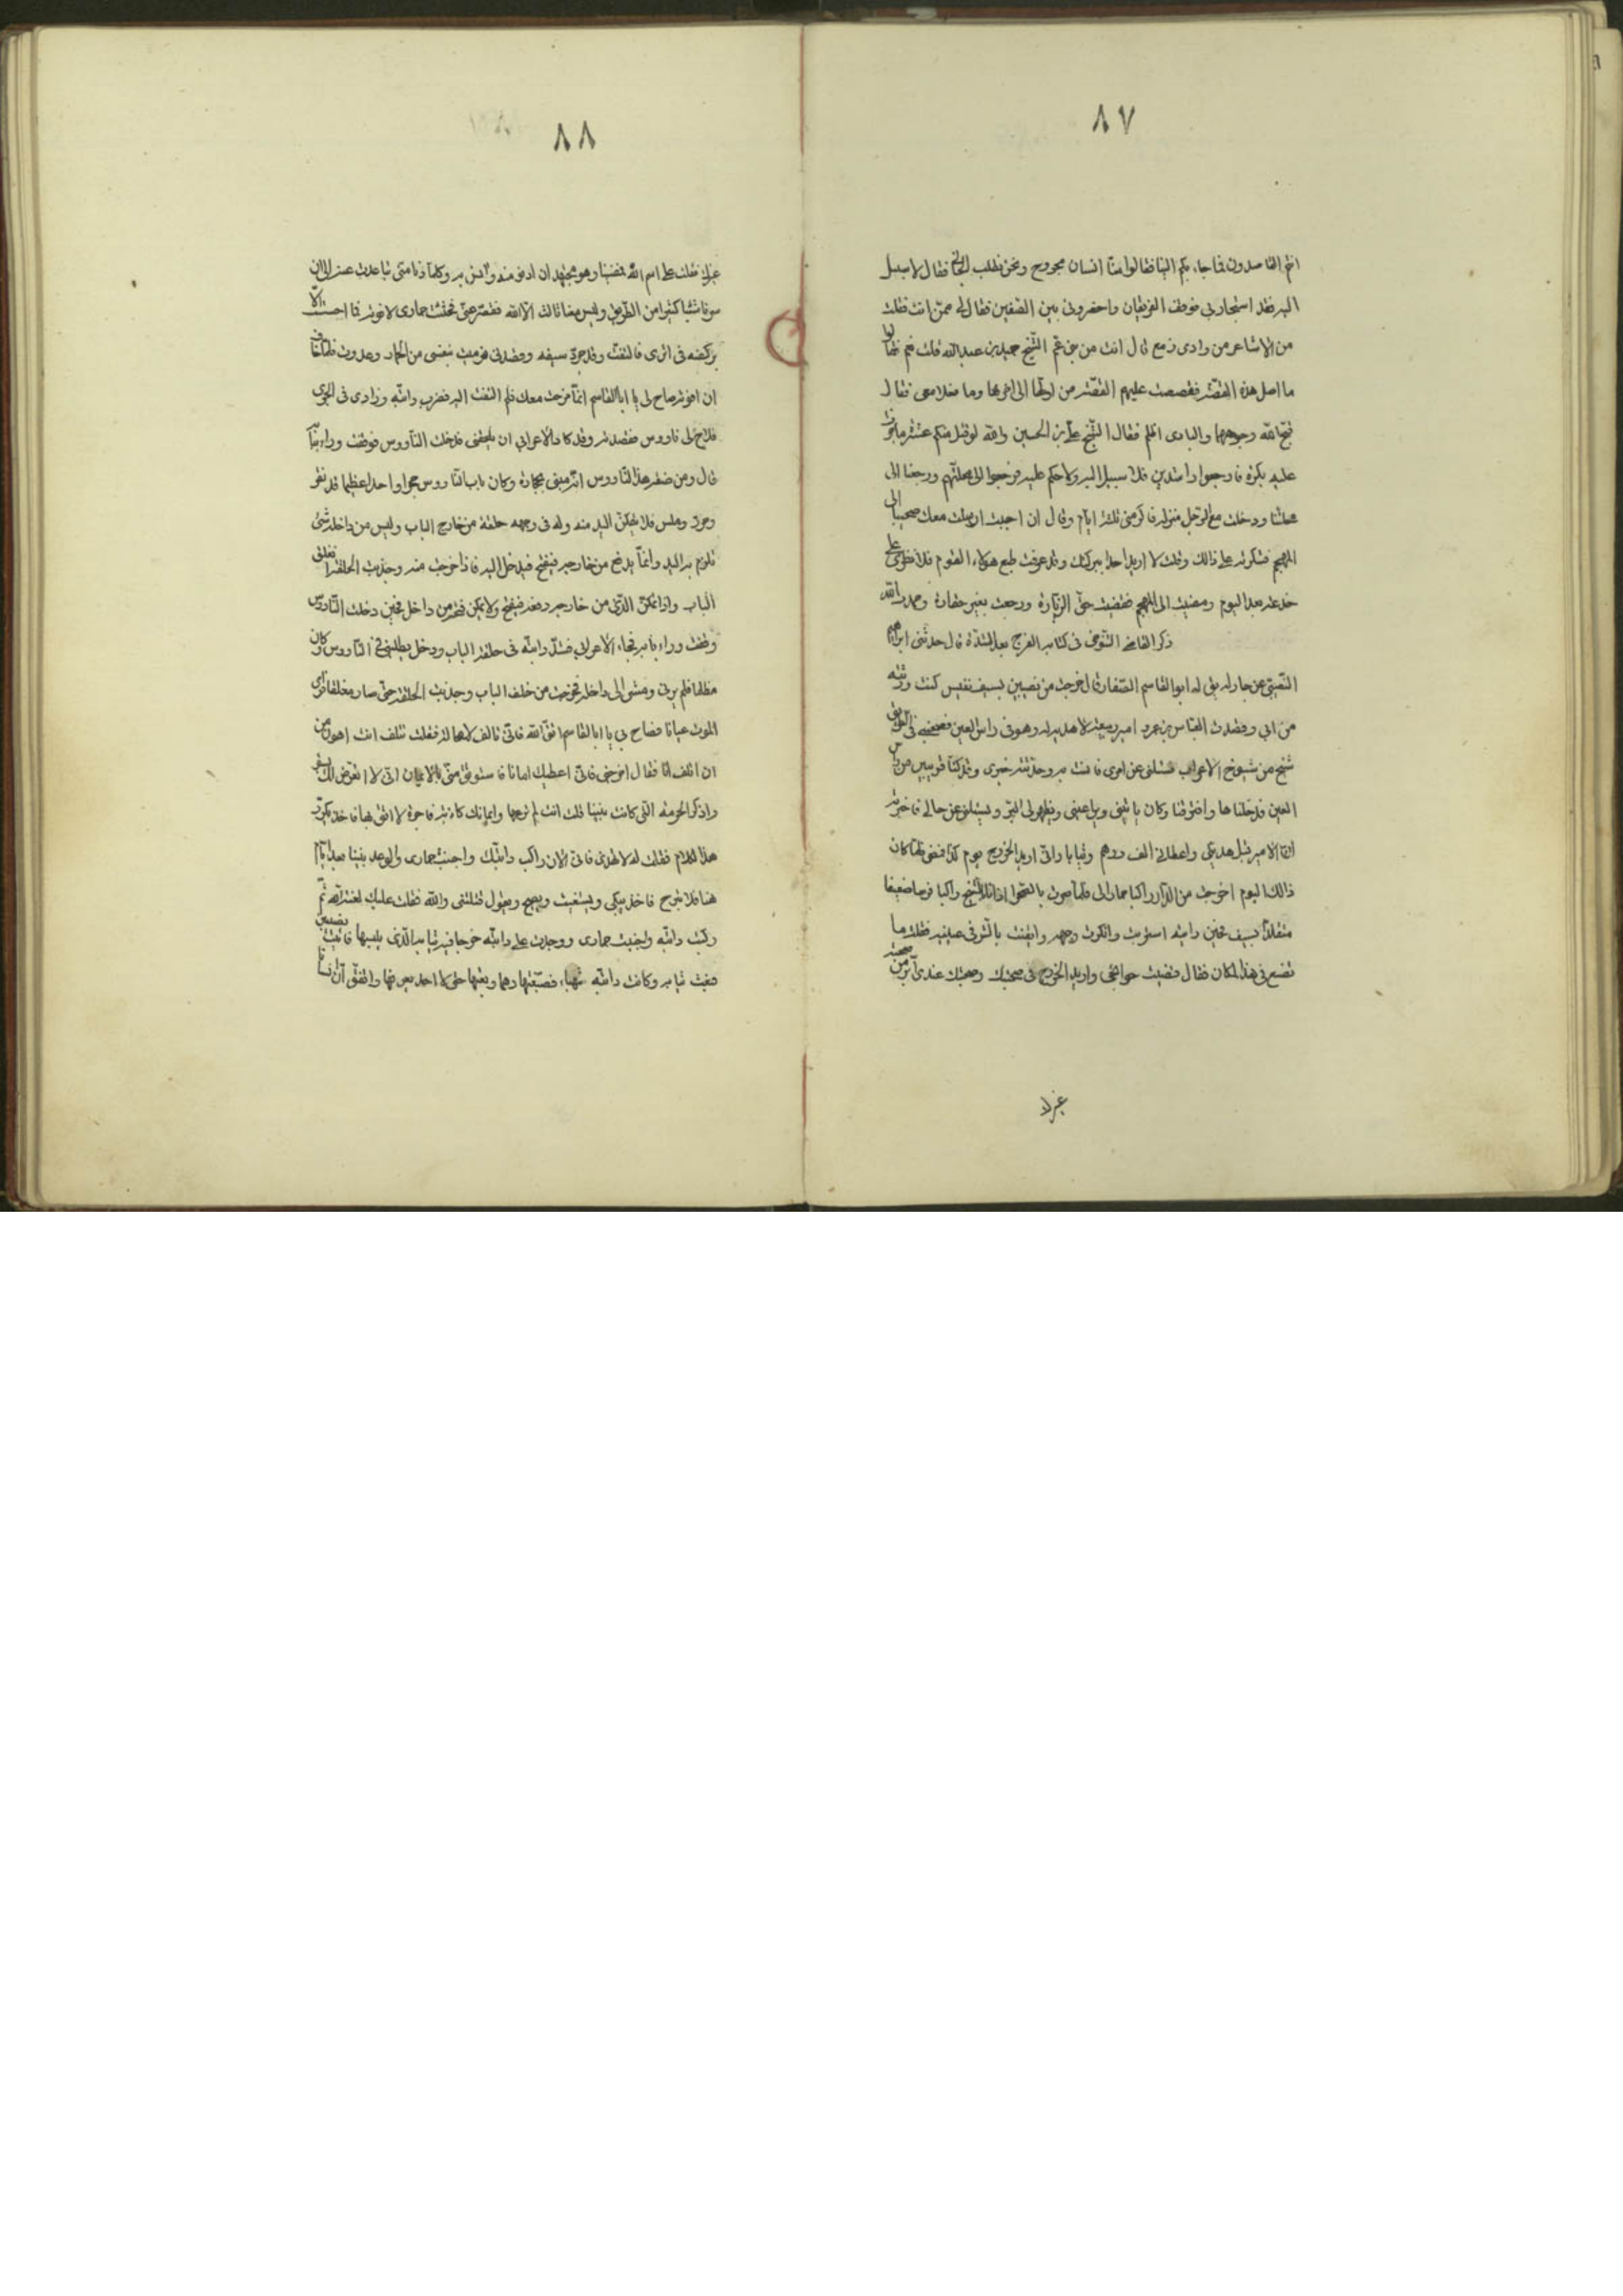 ٨٧
انتم القاصدون فما جاء بكم الينا فقالوا منا انسان مجروح ونحن نطلب فقال لا سبيل
اليه فقد استجار بي فوقف الفريقان واحضروني بين الصفين فقال لي ممن انت فقلت
من الاشاعر من وادي زمع قال انت من بني عم الشيخ حميد بن عبد الله قلت نعم فقال
ما اصل هذه القصة فقصصت عليهم القصة من اولها الى اخرها وما معي فقال
قبح الله وجوههما والبادي اظلم فقال الشيخ علي بن الحسين والله لو قتل منكم عشرة ما
عليه بكرة فارجعوا راشدين فلا سبيل اليه ولا حكم عليه فرجعوا الى محلتهم ورجعنا الى
محلتنا ودخلت مع الرجل منزله فاكرمني ثلثة ايام وقال ان احببت ارسلت معك صحيبا الى
المهجم فشكرته على ذالك وقلت لا اريد احدا ببركتك وقد عرفت طبع هولاء القوم فلا
بعد اليوم ومضيت الى المهجم فقضيت حق الزيارة ورجعت بغير خفارة وحمدت الله
ذكر القاضي التنوخي في كتابه الفرج بعد الشدة قال حدثني ابراهيم
النصيبي عن جار له يق له ابو القاسم الصفار قال خرجت من نصيبين بسيف نفيس كنت ورثته
من ابي وقصدت العباس بن عمرو امير ربيعة لاهديه له وهو في راس العين فصحبني في الطريق
شيخ من شيوخ الاعراب فسئلني عن امري فانست به وحدثته خبري وقد كنا قريبين من راس
العين فدخلناها وافترقنا وكان ياتيني ويراعيني ويظهر لي البر ويسئلني عن حالي فاخبرته
ان الامير قبل هديتي واعطاني الف درهم وثيابا واني اريد الخروج يوم كذا فلما كان
ذالك اليوم اخرجت من الدار راكبا حمارا لي فلما صرت بالصحرا اذا انا بالشيخ راكبا فرسا ضعيفا
متقلدا بسيف فحين رايته استربت وانكرت وجهه وايقنت بالشر في عينيه فقلت ما
تصنع في هذا المكان فقال قضيت حوائجي واريد الخروج في صحبتك وصحبتك عندي آثر من صحبة
غيرك
٨٨
غيرك فقلت على اسم الله فمضينا وهو يجتهد ان ادنو منه وانس به وكلما دنا مني تباعدت عنه الى ان
سرنا شيئا كثيرا من الطريق وليس معنا ثالث الا الله فقصر عني فحثثت حماري لافوته فما احسست الا
بركضه في اثري فالتفت وقد جرد سيفه وقصدني فرميت بنفسي من الحمار وعدوت فلما خاف
ان افوته صاح لي يا ابا القاسم انما مزحت معك فلم التفت اليه فضرب دابته وزاد في الجري
فلاح لي ناووس فقصدته وقد كاد الاعرابي ان يلحقني فدخلت الناووس فوقفت وراء بابه
قال ومن صفة هذا الناووس انه مبني بحجارة وكان باب الناووس حجرا واحدا عظيما قد نقر
وحرد وملس فلا تتمكن اليد منه وله في وجهه حلقة من خارج الباب وليس من داخله شئ
تلزم به اليد وانما يدفع من خارجه فينفتح فيدخل اليه فاذا خرجت منه وجذبت الحلقة انغلق
الباب واذا تمكن من خارجه فينفتح ولا يمكن فتحه من داخل فحين دخلت الناووس
وقفت وراء بابه فجاء الاعرابي فشد دابته في حلقة الباب ودخل يطلبني في الناووس وكان
مظلما فلم يرني ومشى الى داخله فخرجت من خلف الباب وجذبت الحلقة حتى صار مغلقا فراى
الموت عيانا فصاح بي يا ابا القاسم اتق الله فاني تالف لا محالة فقلت تتلف انت اهون من
ان اتلف انا فقال اخرجني فاني اعطيك امانا فاستوثق مني بالايمان اني لا اتعرض لك بسوء
واذكر الحرمة التي كانت بيننا قلت انت لم ترعها وايمانك كاذبة فاجرة لا اثق بها فاخذ يكرر
هذا الكلام فقلت له لا فاني الان راكب دابتك واجنب حماري والوعد بيننا بعد ايام
هنا فلا تبرح فاخذ يبكي ويستغيث ويصيح ويقول قتلتني والله فقلت عليك لعنة الله ثم
ركبت دابته وجنبت حماري ووجدت على دابته خرجا فيه ثيابه الذي يلبسها فاتيت نصيبين
فبعت ثيابه وكانت دابته شهباء فصبغتها دهما وبعتها حتى لا احد يعرفها واتفق ان